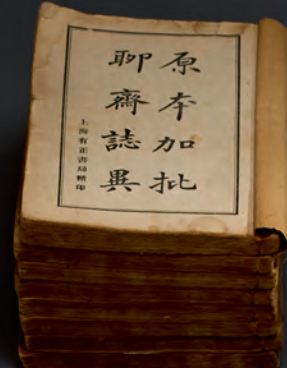 原本加批
聊齋誌異
上海有正書局精印